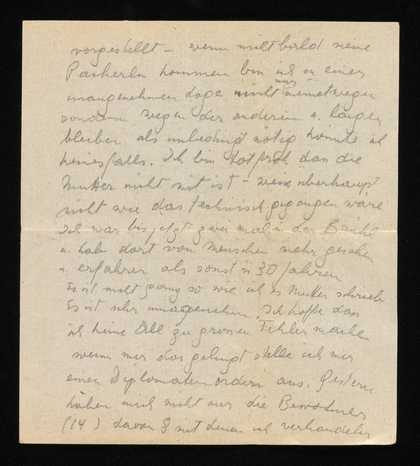 vorgestellt – wenn nicht bald meine
Packerln kommen bin ich in einer
unangenehmen Lage nicht nur meinetwegen
sondern wegen der anderen u. länger
bleiben als unbedingt nötig könnte ich
keinesfalls. Ich bin hot froh dan die
Mutter nicht mit ist – weiss überhaupt
nicht wie das technisch gegangen wäre
Ich war bis jetzt zwei mal in der
u. habe dort von Menschen mehr gesehen
u. erfahren als sonst in 30 Jahren
Es ist nicht ganz so wie ich der Mutter schrieb
Es ist sehr unangenehm. Ich hoffe dan
ich keine all zu grossen Fehler mache
wenn mir das gelingt stelle ich mir
einen Diplomatenorden aus. Gestern
haben mich nicht nur die Bewohner
(14) davon 8 mit denen ich verhandeln